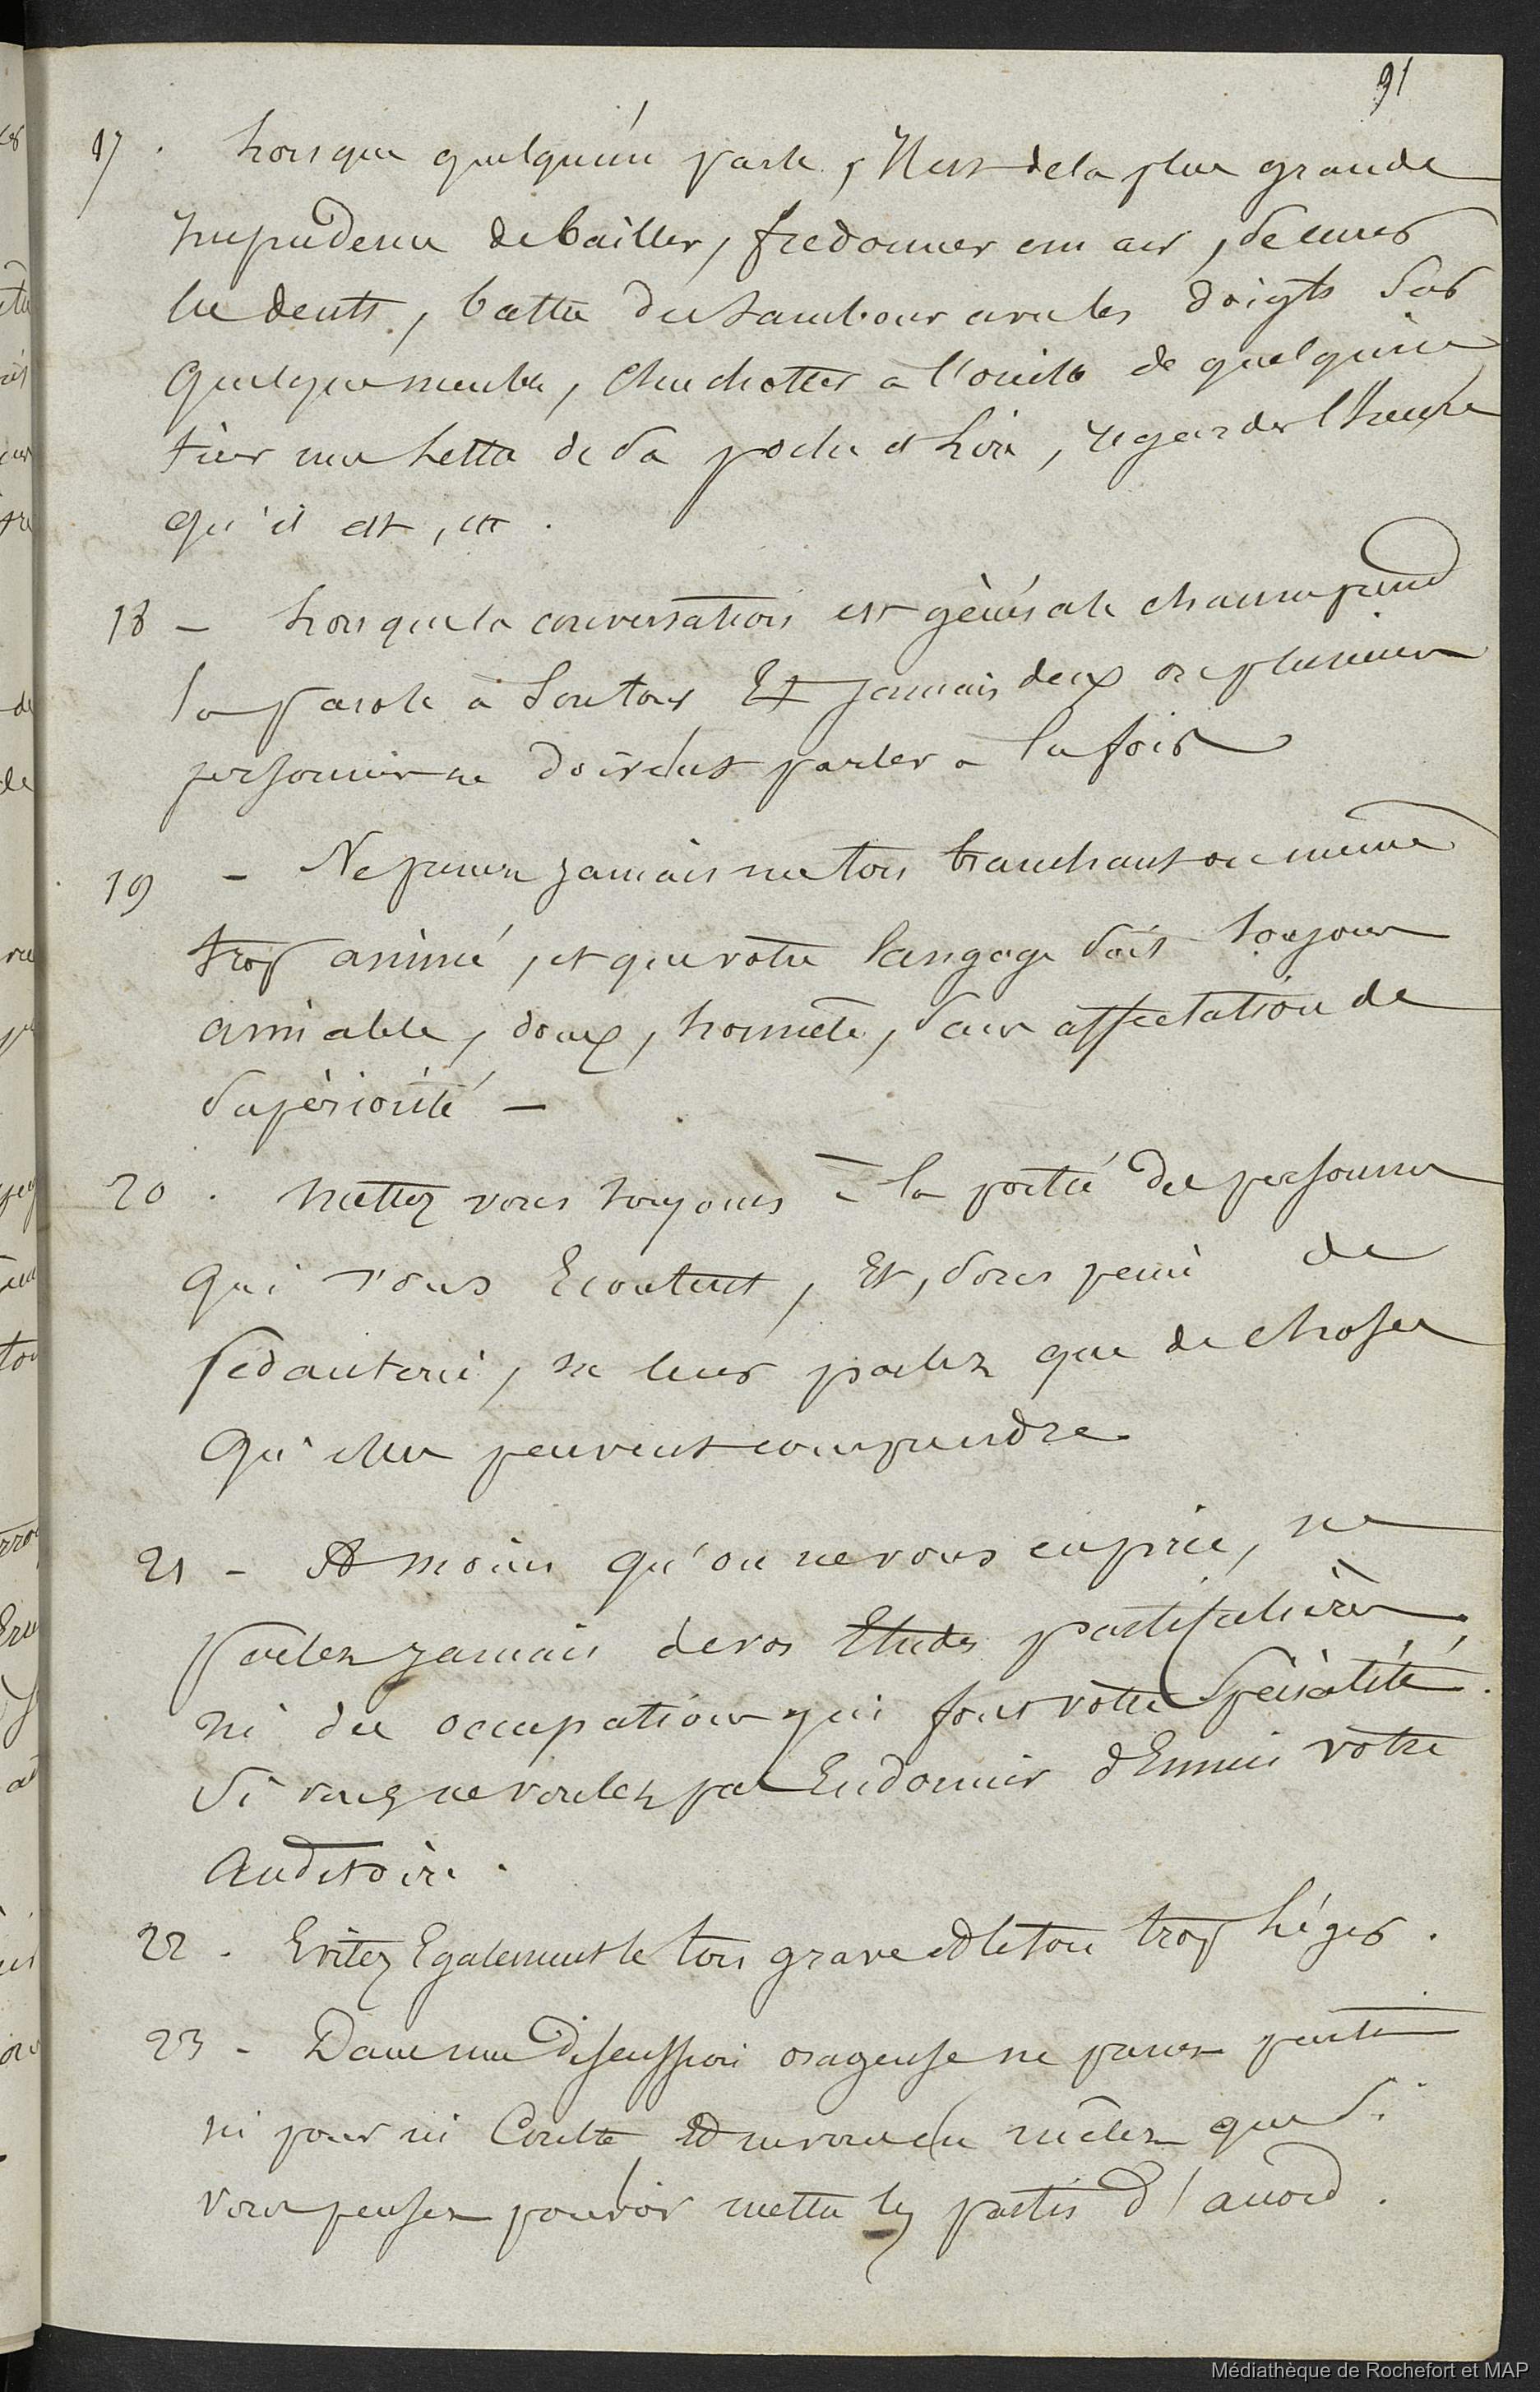 91
17. Lorsque quelqu'un parle, Il est de la plus grande
impudence de bailler, fredonner un air, se curer
les dents, battre du tambour avec les doigts sur
quelque meuble, chuchotter à l'oreille de quelqu'un
tirer une lettre de sa poche et lire, regarder l'heure
qu'il est, etc.
18 - Lorsque la conversation est générale chacun prend
la parole à son tour Et jamais deux ou plusieurs
personnes ne doivent parler a la fois
19 - Ne prenez jamais un ton tranchant ou même
trop animé, et que votre langage soit toujours
aimable, doux, honnête, sans affectation de
supériorité -
20. Mettez vous toujours à la portée des personnes
qui vous Ecoutent, Et, sous peine de
pédanterie, ne leur parlez que de choses
qu'elles peuvent comprendre.
21 - A moins qu'on ne vous en prie, ne
parlez jamais de vos Etudes particulières,
ni des occupations qui font votre spécialité.
Si vous ne voulez pas Endormir d'Ennui votre
auditoire.
22. Evitez Egalement le ton grave et le ton trop léger.
23 - Dans une discussion orageuse ne prenez parti
ni pour ni Contre Et ne vous en mêlez que si
vous pensez pouvoir mettre les partis d'accord.
Médiathèque de Rochefort et MAP